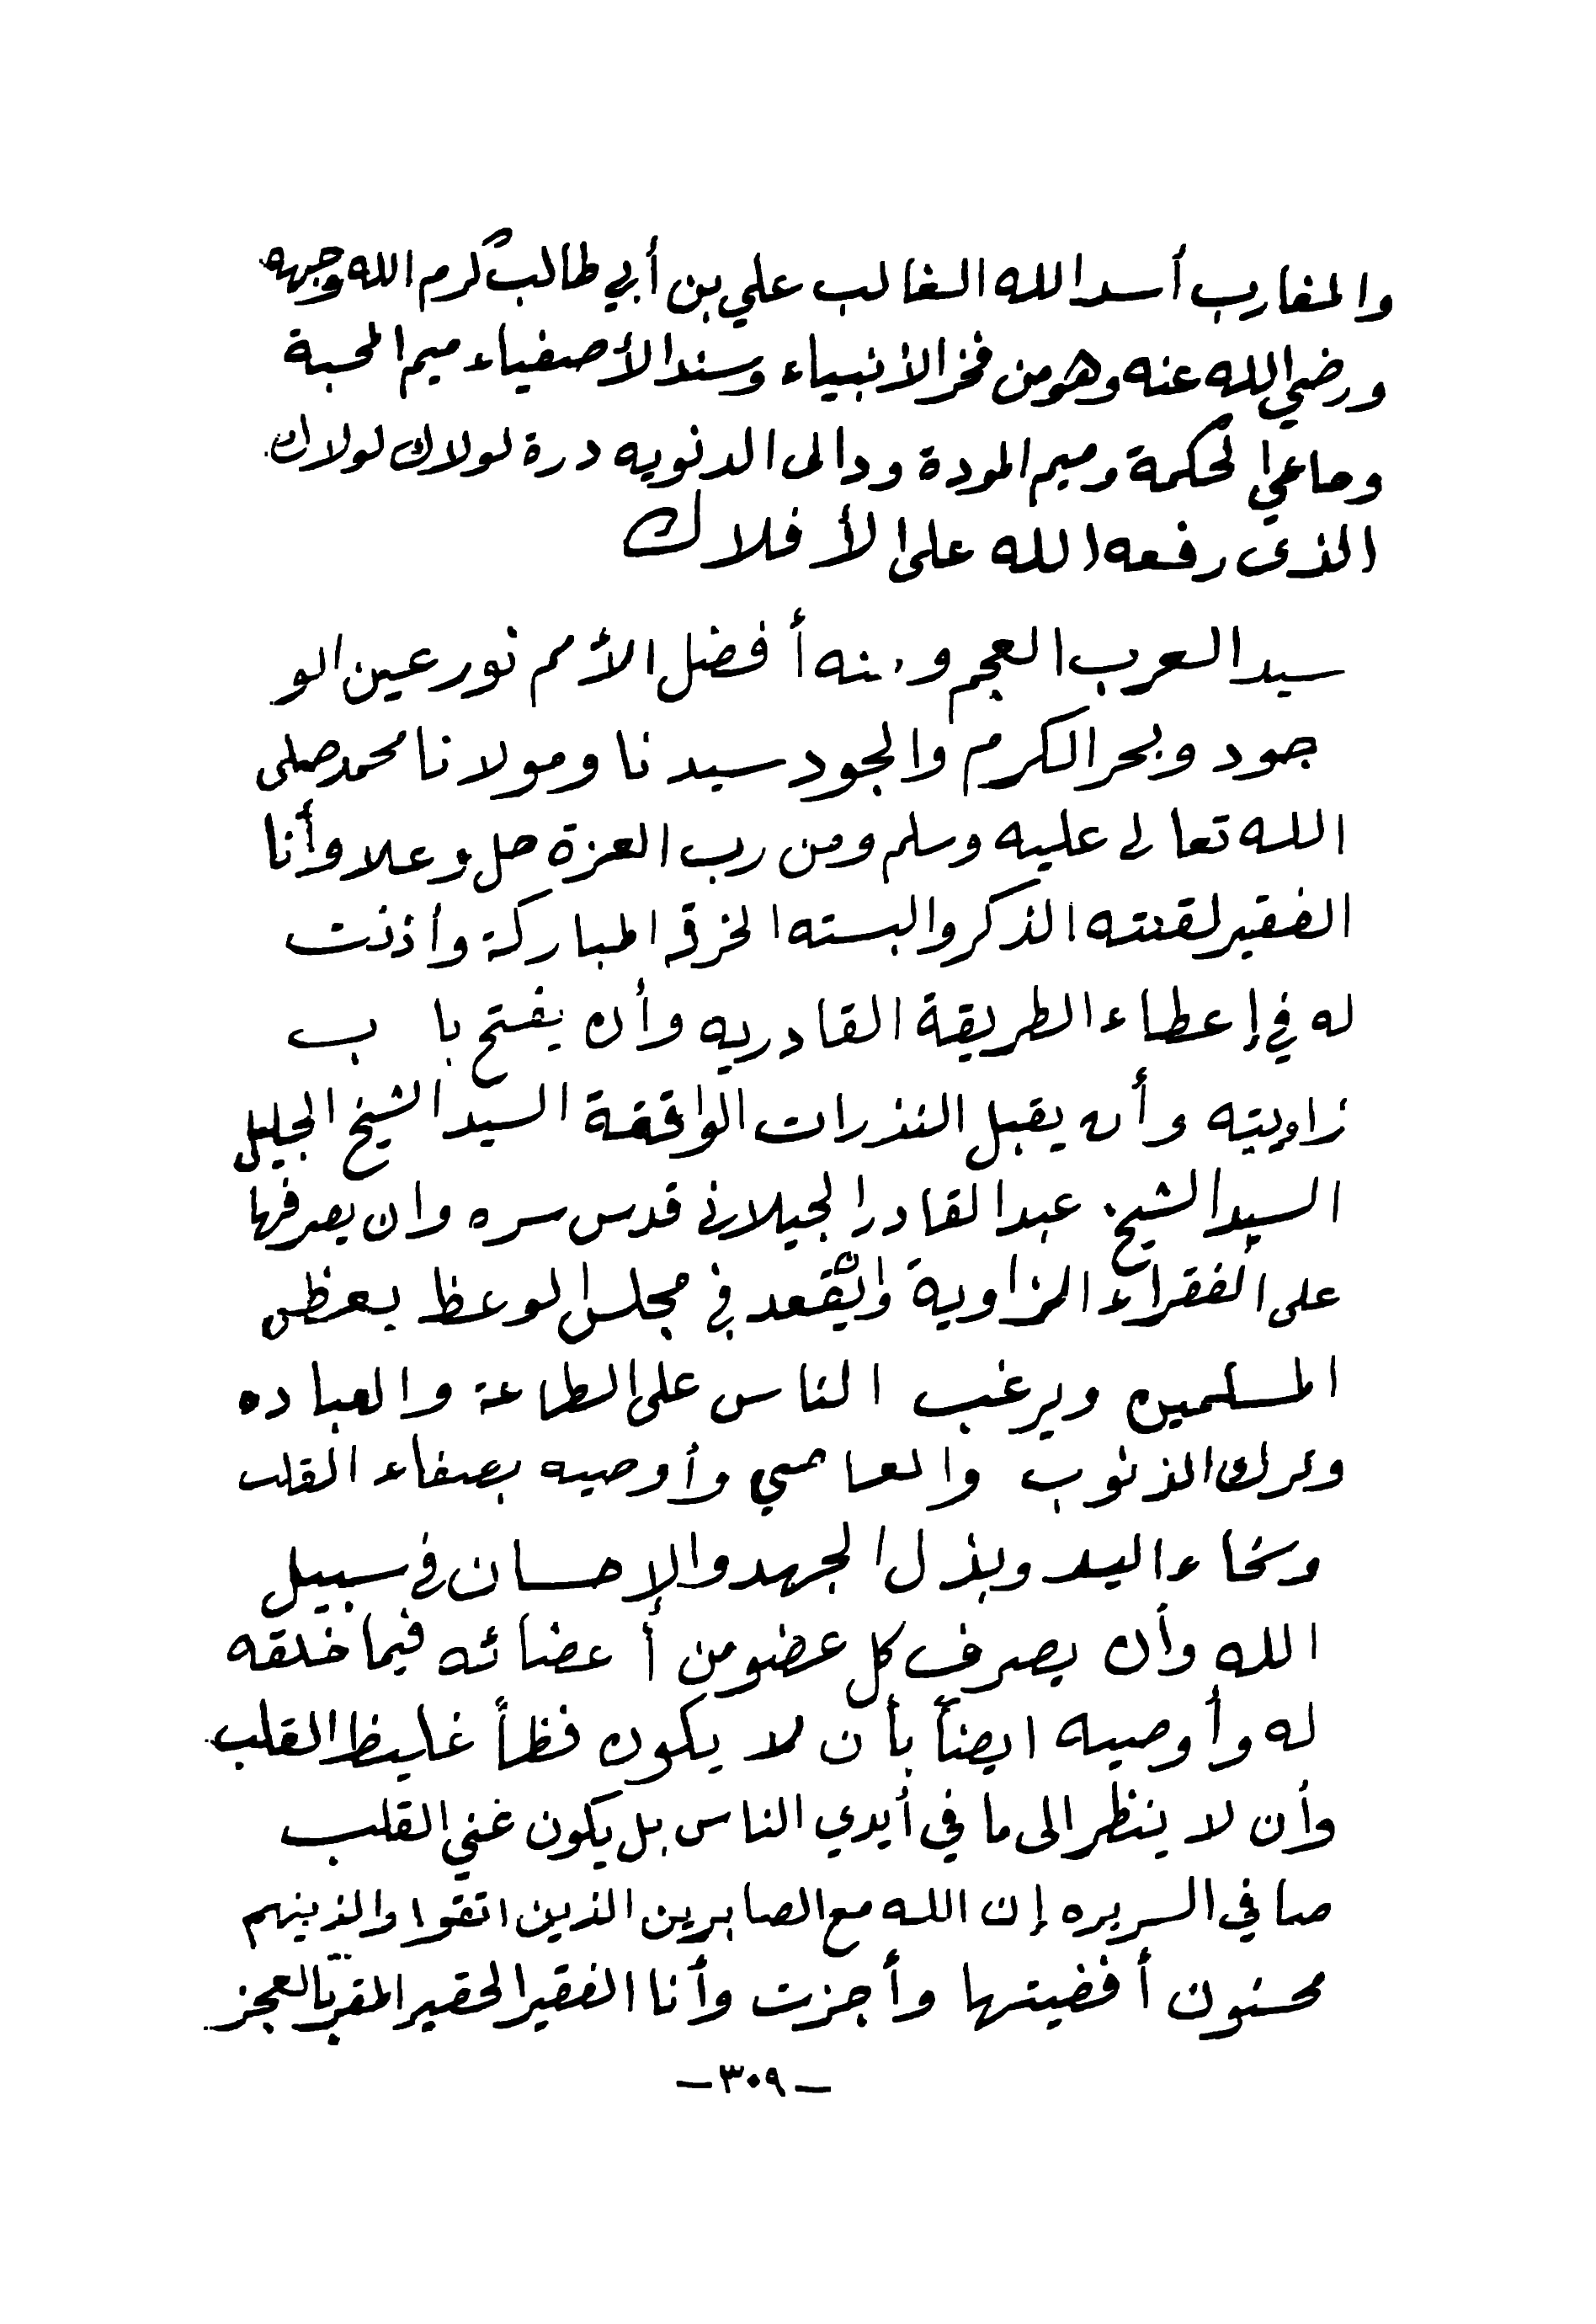 والمغارب أسد الله الغالب علي بن أبي طالب كرم الله وجهه
ورضي الله عنه وهو من فخر الأنبياء وسند الأصفياء ميم المحبة
وحاء الحكمة وميم المودة ودالى الدنويه درة لولاك لولاك
الذى رفعه الله على الأفلاك
سيد العرب العجم و منه أفضل الأمم نور عين الو
جود وبحر الكرم والجود سيدنا ومولانا محمد صلى
الله تعالى عليه وسلم ومن رب العزة جل وعلا وأنا
الفقير لقنته الذكر والبسته الخرقه المباركة وأذنت
له في إعطاء الطريقة القادريه وأن يفتح با ب
زاويته وأن يقبل النذرات الواقفة السيد الشيخ الجليل
السيد الشيخ عبد القادر الجيلانى قدس سره وان يصرفها
على الفقراء الزاوية وان يقعد في مجلس الوعظ يعظى
المسلمين ويرغب الناس على الطاعة والعباده
وترك الذنوب والعاصي وأوصيه بصفاء القلب
وسخاء اليد وبذل الجهد والإحسان في سبيل
الله وأن يصرف كل عضو من أعضائه فيما خلقه
له وأوصيه ايضاً بأن لا يكون فظاً غليظ القلب
وأن لا ينظر الى ما في أيدي الناس بل يكون غني القلب
صافي السريره إن الله مع الصابرين الذين اتقوا والذينهم
محسنون أفضيتها وأجزت وأنا الفقير الحقير المقر بالعجز
-٣٠٩-